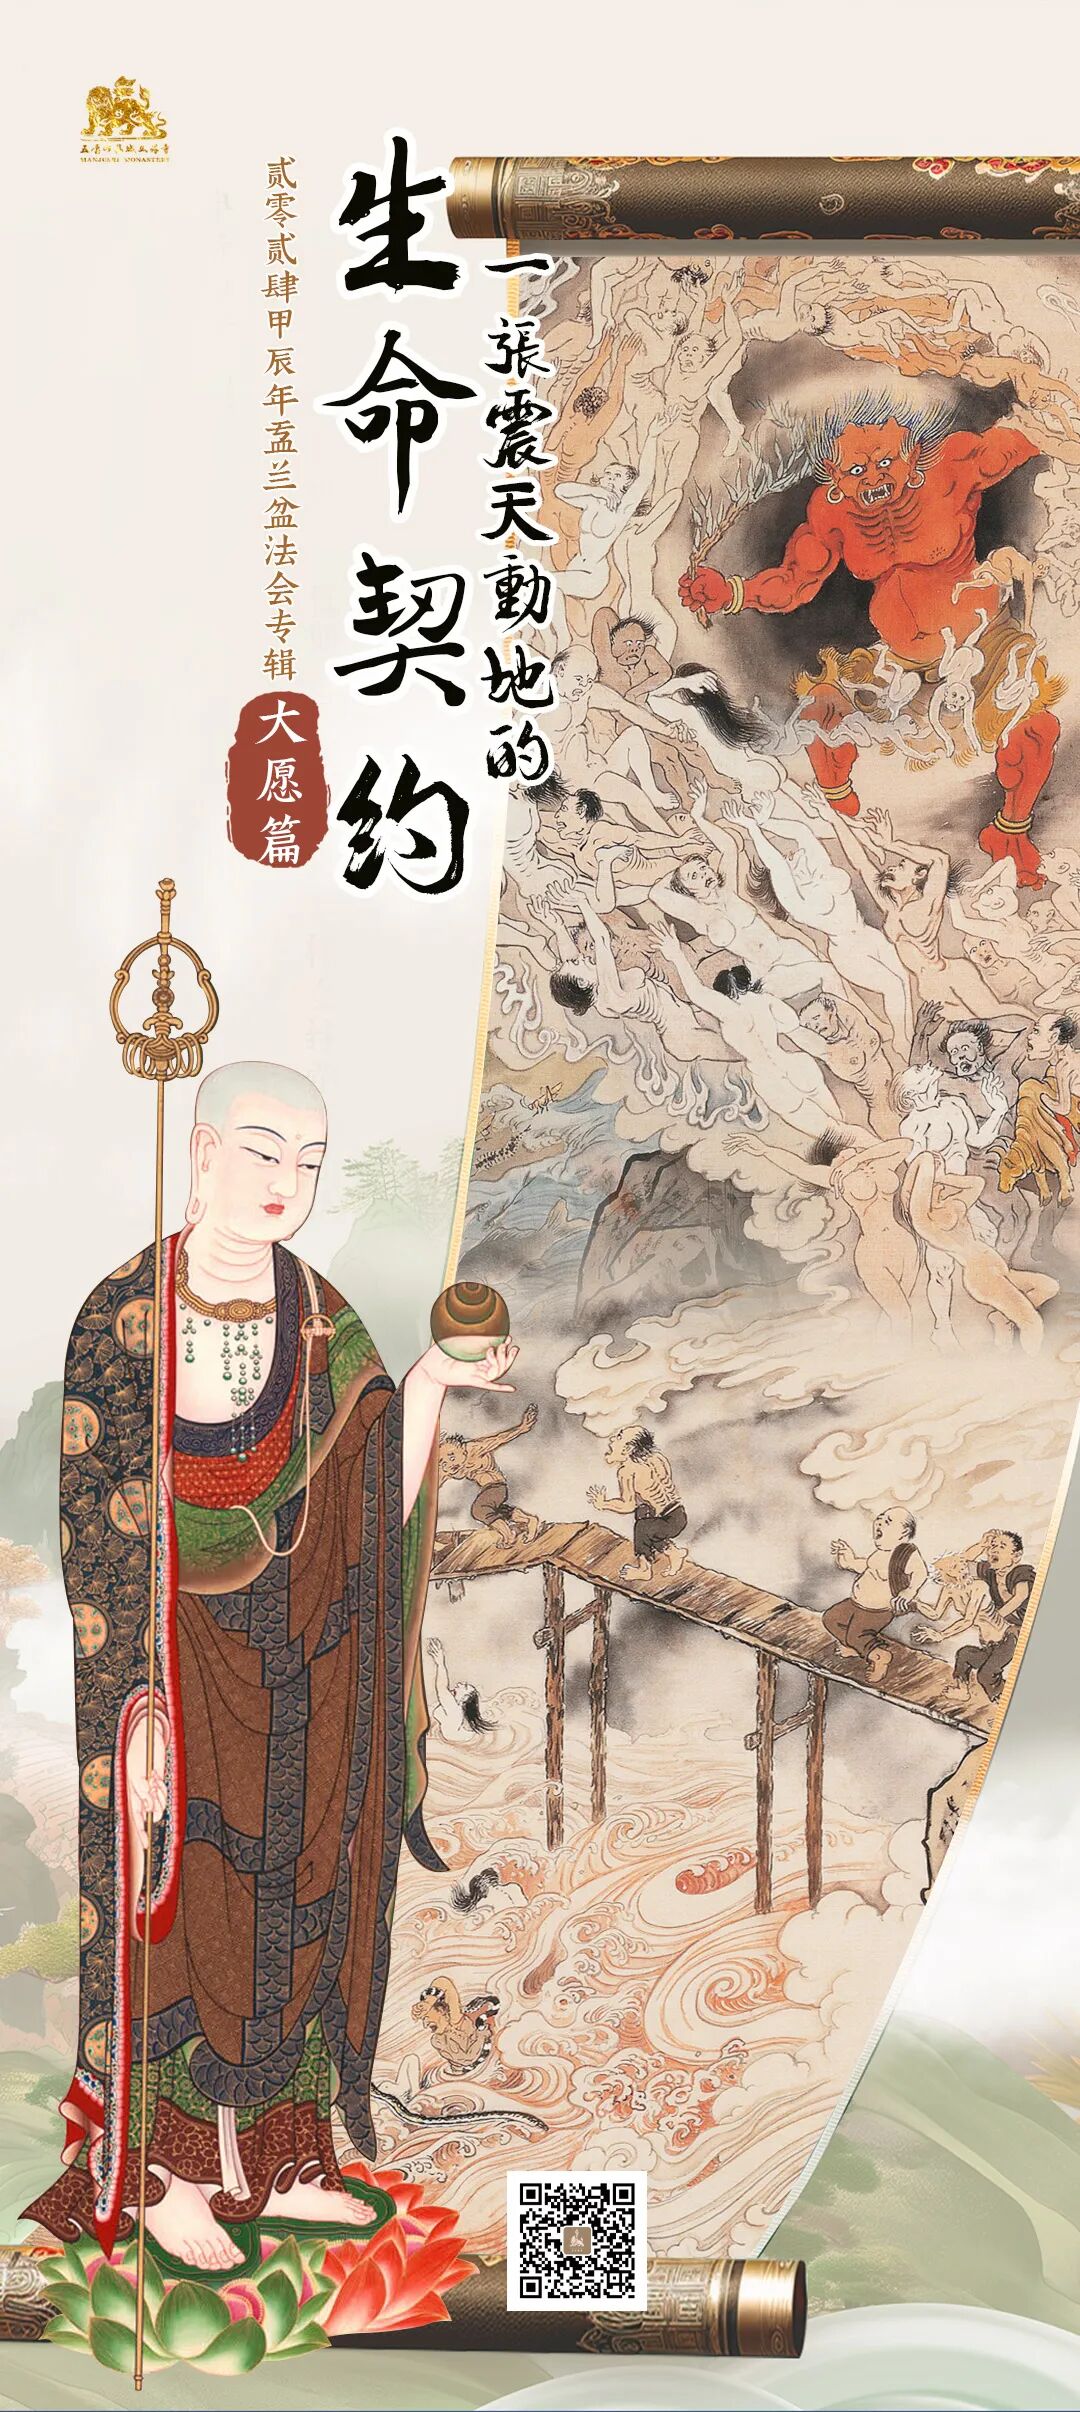 MANJUSRI MONASTERY
一張震天動地的
生命契约
贰零贰肆甲辰年盂兰盆法会专辑
大愿篇